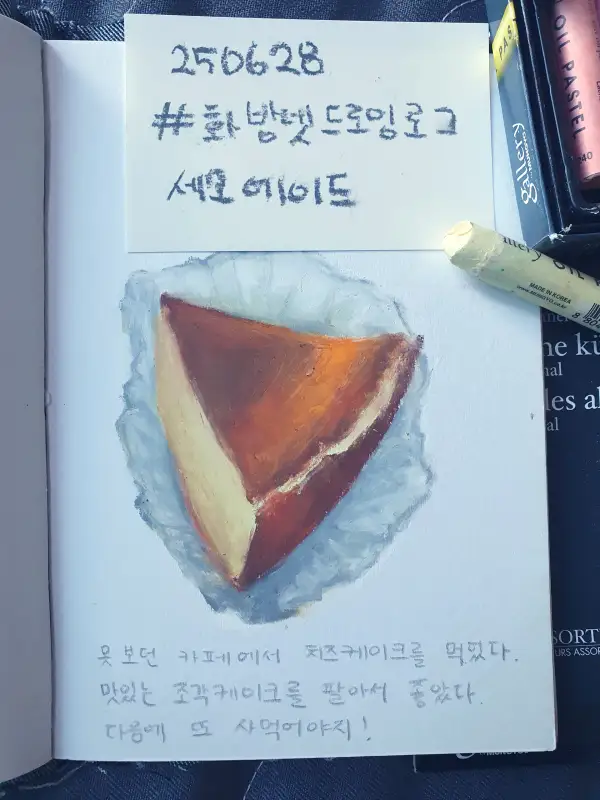 250628
#화방넷드로잉로그
세모에이드
OIL PASTEL
PAS
gallery
MADE IN KOREA
못 보던 카페에서 치즈케이크를 먹었다.
맛있는 조각케이크를 팔아서 좋았다.
다음에 또 사먹어야지!